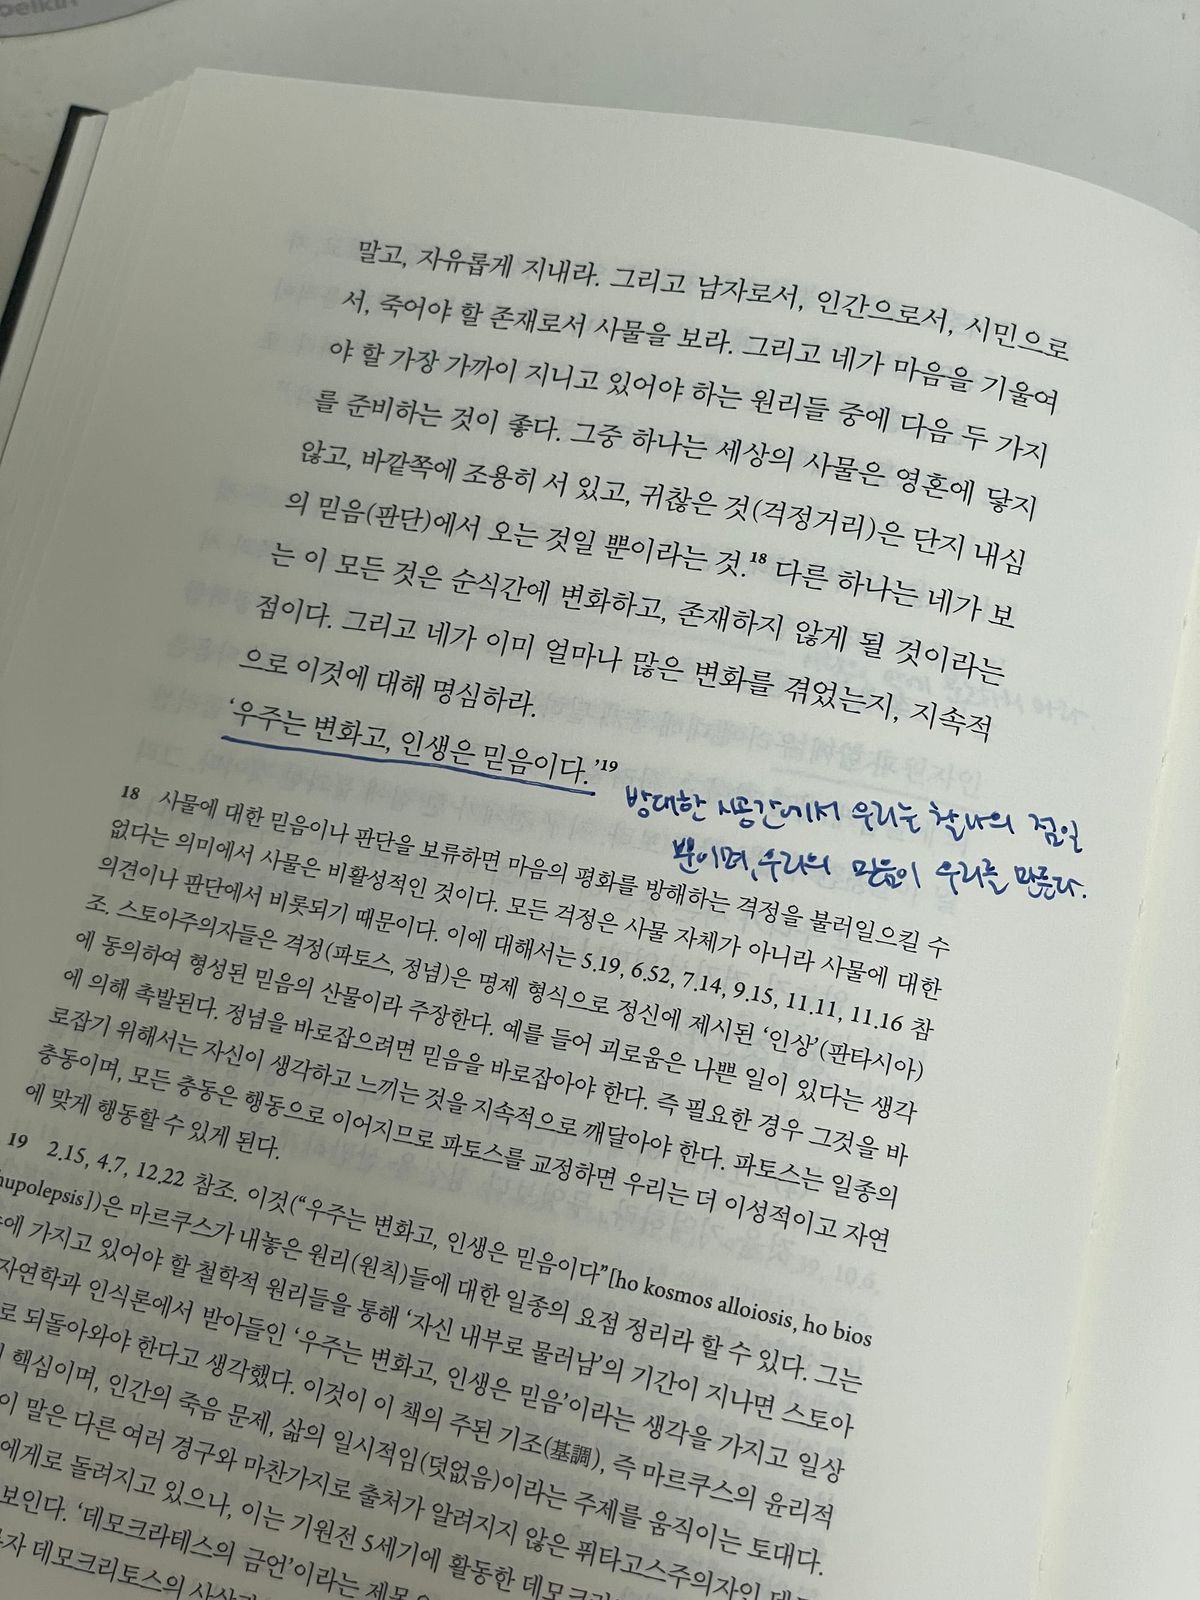 belkin
말고, 자유롭게 지내라. 그리고 남자로서, 인간으로서, 시민으로
서, 죽어야 할 존재로서 사물을 보라. 그리고 네가 마음을 기울여
야 할 가장 가까이 지니고 있어야 하는 원리들 중에 다음 두 가지
를 준비하는 것이 좋다. 그중 하나는 세상의 사물은 영혼에 닿지
않고, 바깥쪽에 조용히 서 있고, 귀찮은 것(걱정거리)은 단지 내심
의 믿음(판단)에서 오는 것일 뿐이라는 것.18 다른 하나는 네가 보
는 이 모든 것은 순식간에 변화하고, 존재하지 않게 될 것이라는
점이다. 그리고 네가 이미 얼마나 많은 변화를 겪었는지, 지속적
으로 이것에 대해 명심하라.
‘우주는 변화고, 인생은 믿음이다.’19
방대한 시공간에서 우리는 찰나의 점일
뿐이며, 우리의 믿음이 우리를 만든다.
18 사물에 대한 믿음이나 판단을 보류하면 마음의 평화를 방해하는 걱정을 불러일으킬 수
없다는 의미에서 사물은 비활성적인 것이다. 모든 걱정은 사물 자체가 아니라 사물에 대한
의견이나 판단에서 비롯되기 때문이다. 이에 대해서는 5.19, 6.52, 7.14, 9.15, 11.11, 11.16 참
조. 스토아주의자들은 걱정(파토스, 정념)은 명제 형식으로 정신에 제시된 ‘인상’(판타시아)
에 동의하여 형성된 믿음의 산물이라 주장한다. 예를 들어 괴로움은 나쁜 일이 있다는 생각
에 의해 촉발된다. 정념을 바로잡으려면 믿음을 바로잡아야 한다. 즉 필요한 경우 그것을 바
로잡기 위해서는 자신이 생각하고 느끼는 것을 지속적으로 깨달아야 한다. 파토스는 일종의
충동이며, 모든 충동은 행동으로 이어지므로 파토스를 교정하면 우리는 더 이성적이고 자연
에 맞게 행동할 수 있게 된다.
19 2.15, 4.7, 12.22 참조. 이것(“우주는 변화고, 인생은 믿음이다”[ho kosmos alloiosis, ho bios
hupolepsis])은 마르쿠스가 내놓은 원리(원칙)들에 대한 일종의 요점 정리라 할 수 있다. 그는
에 가지고 있어야 할 철학적 원리들을 통해 ‘자신 내부로 물러남’의 기간이 지나면 스토아
자연학과 인식론에서 받아들인 ‘우주는 변화고, 인생은 믿음’이라는 생각을 가지고 일상
로 되돌아와야 한다고 생각했다. 이것이 이 책의 주된 기조(基調), 즉 마르쿠스의 윤리적
핵심이며, 인간의 죽음 문제, 삶의 일시적임(덧없음)이라는 주제를 움직이는 토대다.
이 말은 다른 여러 경구와 마찬가지로 출처가 알려지지 않은 퓌타고스주의자인 데모
에게로 돌려지고 있으나, 이는 기원전 5세기에 활동한 데모크
보인다. ‘데모크라테스의 금언’이라는 제목
자 데모크리토스의 사상